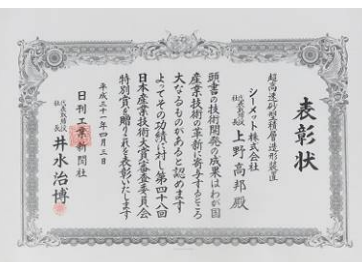 表彰状
超高速砂型積層造形装置
シーメット株式会社
代表取締役社長 上野高邦 殿
頭書の技術開発の成果はわが国
産業技術の革新に寄与するところ
大なるものがあると認めます
よってその功績に対し第四十八回
日本産業技術大賞審査委員会
特別賞を贈りこれを表彰いたします
平成三十一年四月三日
日刊工業新聞社
代表取締役社長 井水治博